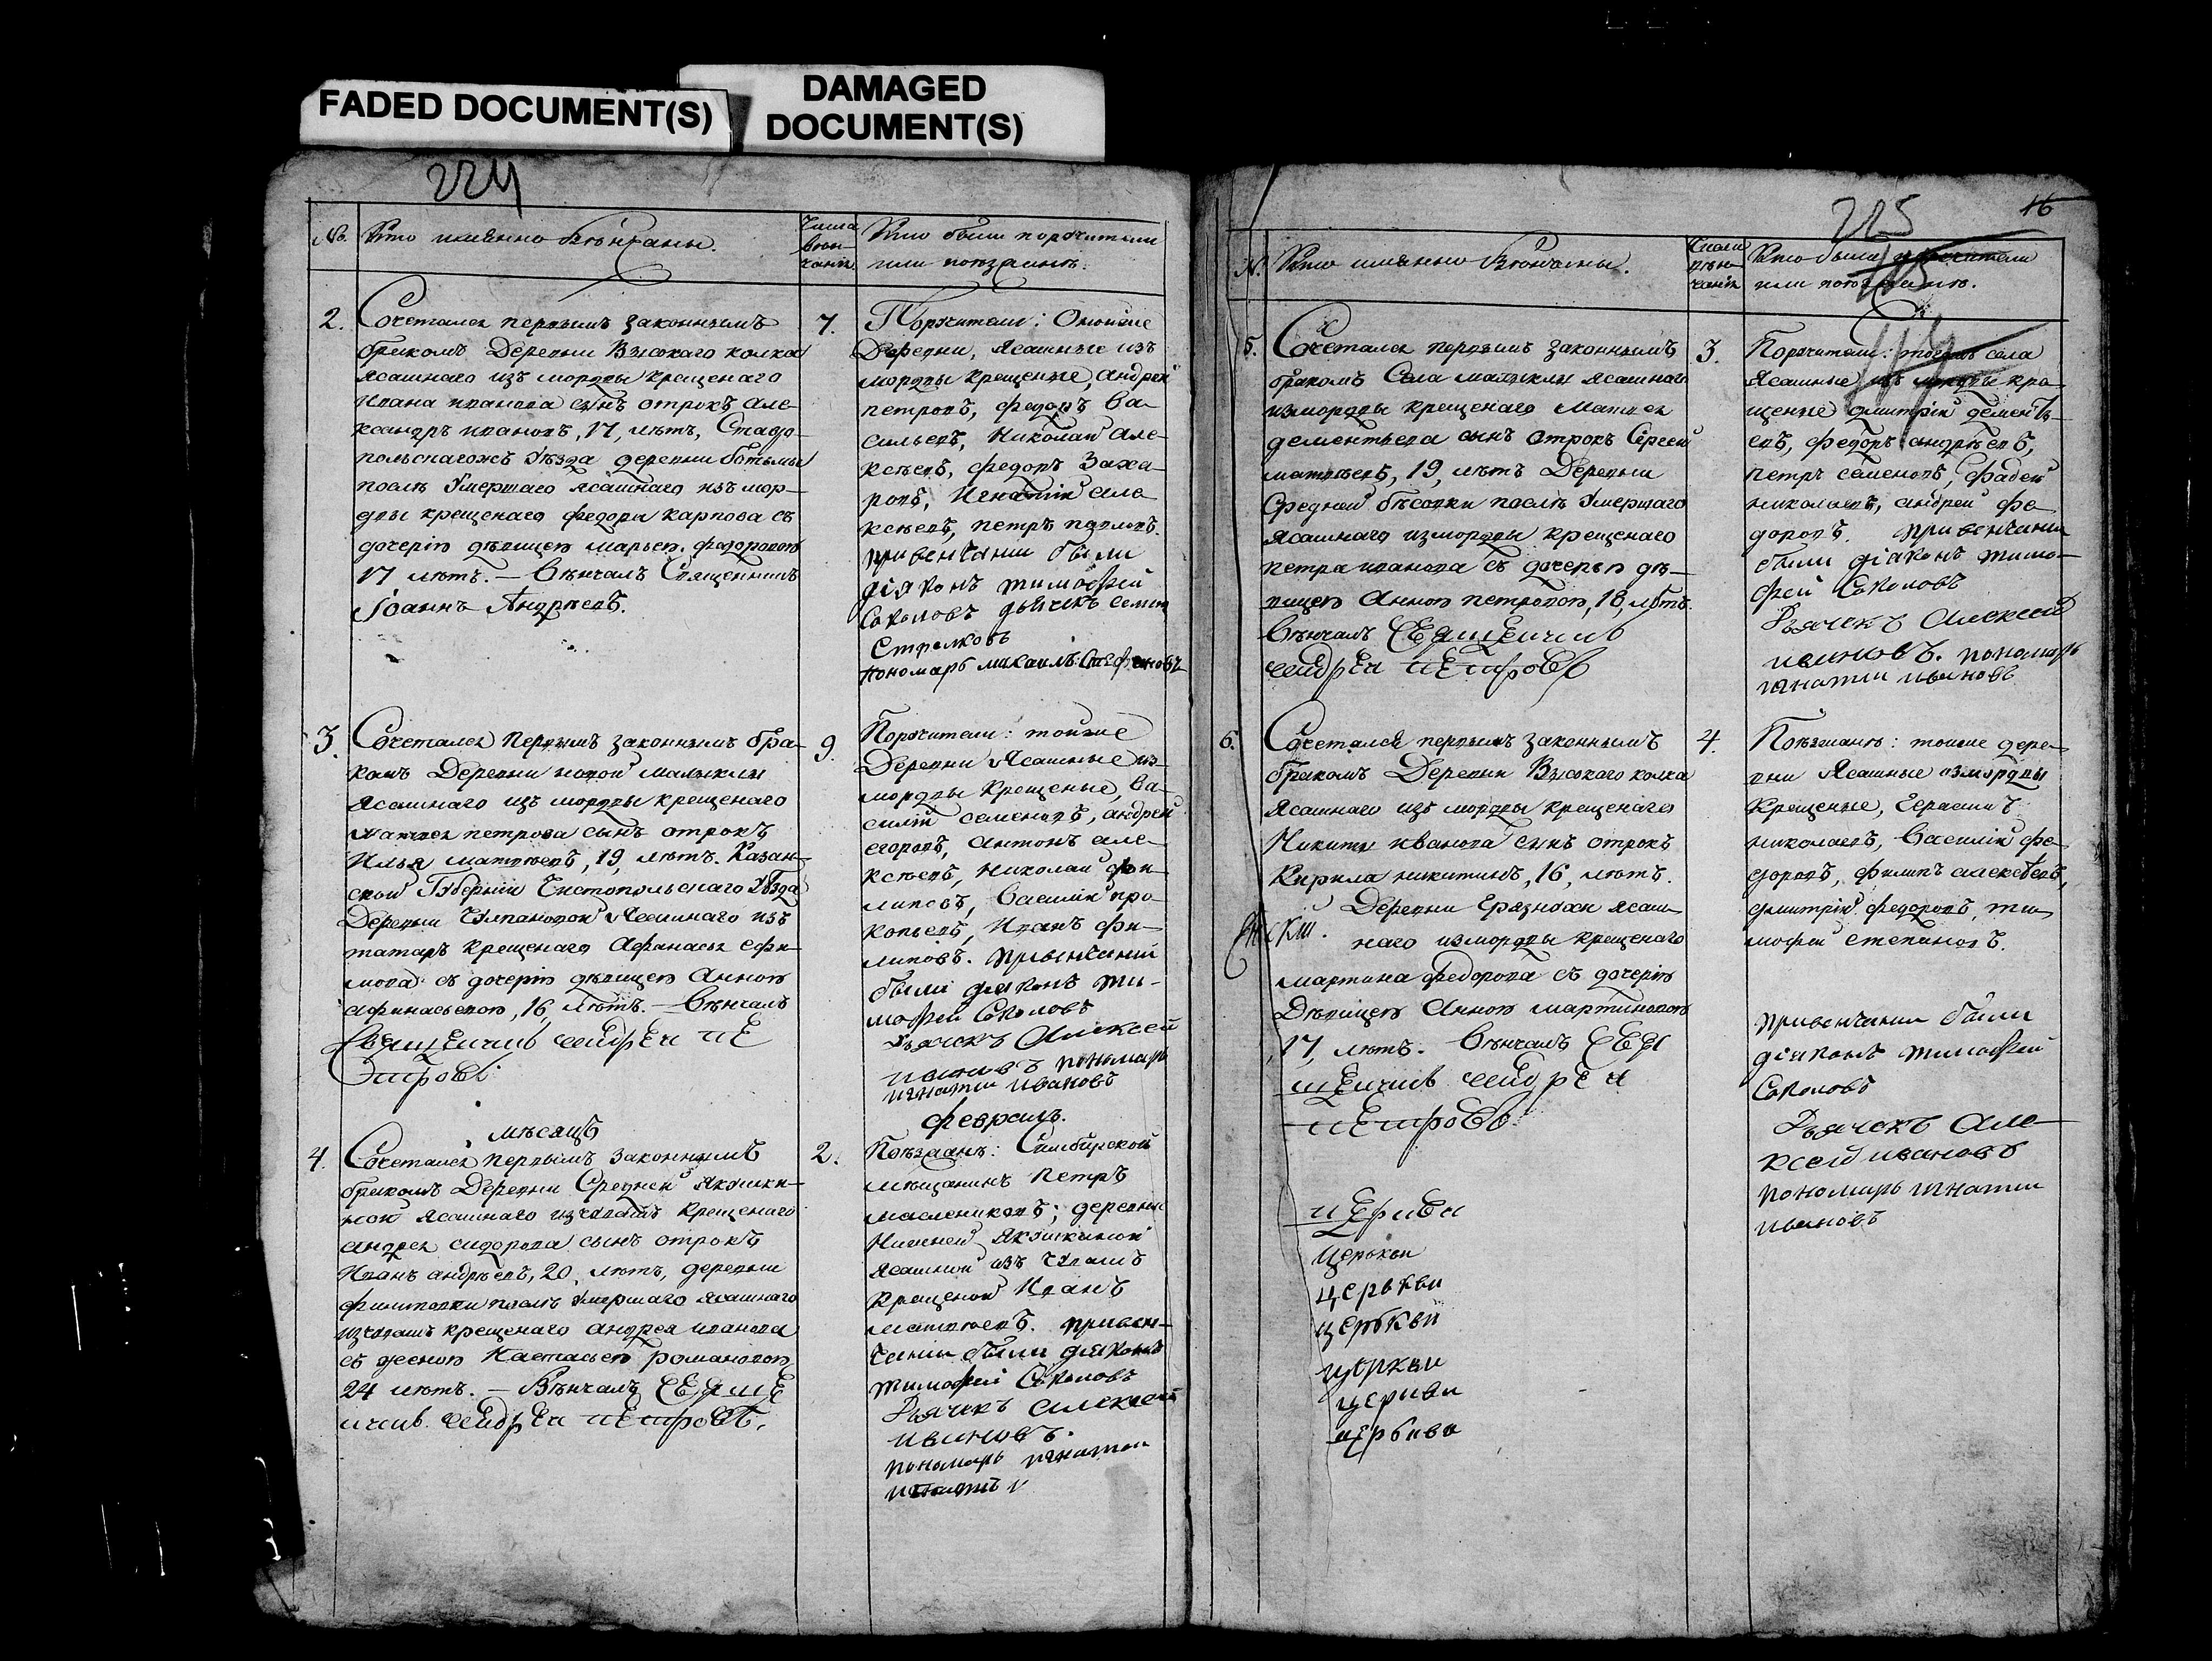 FADED DOCUMENT(S)
DAMAGED
DOCUMENT(S)
224
№. Кто имянно венчаны.
Числа
вен-
чанiя
Кто были поручители
или поезжанѣ.
2. Сочетался первымъ законнымъ 7.
бракомъ Деревни Высокаго колка
ясашнаго изъ мордвы крещенаго
Ивана иванова сынъ отрокъ Але-
ксандръ ивановъ, 17, лѣтъ, Ставро-
польскагожъ Уѣзда деревни Ботьмы
послѣ Умершаго ясашнаго изъ мор-
двы крещенаго федора карпова съ
дочерiю дѣвицею марьею федоровою
17 лѣтъ. — Вѣнчалъ Священникъ
Iоаннъ Андрѣевъ.
Поручители: Оной же
Деревни, Ясашные изъ
мордвы крещеные, андрей
петровъ, федоръ Ва-
сильевъ, Николай але-
ксѣевъ, федоръ Заха-
ровъ, Игнатiй але-
ксѣевъ, петръ павловъ.
привенчании были
дiяконъ тимофей
Соколовъ дьячекъ семенъ
Стрелковъ
пономарь михаилъ Стефановъ
3. Сочетался первымъ законнымъ бра- 9.
комъ Деревни новой малыклы
ясашнаго изъ мордвы крещенаго
матвея петрова сынъ отрокъ
Илья матвѣевъ, 19, лѣтъ. Казан-
ской Губернiи Чистопольскаго Уѣзда
Деревни Ясашнаго изъ
татаръ крещенаго Афанасья ефи-
мова съ дочерiю дѣвицею Анною
афанасьевою, 16, лѣтъ. — Вѣнчалъ
Священникъ андрей пе
тровъ.
Поручители: тойже
Деревни Ясашные из-
мордвы крещеные, Ва-
силiй семеновъ, андрей
егоровъ, антонъ але-
ксѣевъ, николай фи-
липовъ, Василiй про-
копьевъ, Иванъ фи-
липовъ. привенчании
были дiяконъ ти-
мофей Соколовъ
дьячекъ Алексей
ивановъ пономарь
игнатии ивановъ
мѣсяцъ
февраль.
4. Сочетался первымъ законнымъ 2.
бракомъ Деревни Средней якушки-
ной ясашнаго изчувашъ крещенаго
андрея сидорова сынъ отрокъ
Иванъ андрѣевъ, 20, лѣтъ, деревни
филиповки послѣ умершаго ясашнаго
изчувашъ крещенаго андрея иванова
съ женою Настасьею романовою
24 лѣтъ. — Вѣнчалъ Свяще
нникъ андрей петровъ.
Поѣзжанѣ: Симбирской
мѣщанинъ петръ
маслениковъ; деревни
Нижней Якушкиной
Ясашной изъ Чувашъ
крещеной Иванъ
матвѣевъ. привен-
чании были дiяконъ
тимофей Соколовъ
дьячекъ алексей
ивановъ.
пономарь игнатии
225 16
№. Кто имянно венчаны.
вен-
чанiя
Кто были поручители
или поезжанѣ.
5. Сочетался первымъ законнымъ 3.
бракомъ Села малыклы ясашнаго
измордвы крещенаго матвея
дементьева сынъ отрокъ Сергей
матвѣевъ, 19, лѣтъ Деревни
Средней бѣсовки послѣ Умершаго
ясашнаго измордвы крещенаго
петра иванова съ дочерью дѣ-
вицею Анною петровою, 18, лѣтъ.
вѣнчалъ Священникъ
андрей петровъ
Поручители: тогожъ села
Ясашные изъ мордвы кре-
щеные дмитрiй дементь-
евъ, федоръ андрѣевъ,
петръ семеновъ, фадей
николаевъ, андрей фе-
доровъ. привенчании
были дiяконъ тимо-
фей Соколовъ
дьячекъ Алексей
ивановъ. пономарь
игнатии ивановъ
6. Сочетался первымъ законнымъ 4.
бракомъ Деревни Высокаго колка
ясашнаго изъ мордвы крещенаго
Никиты иванова сынъ отрокъ
Кирила никитинъ, 16, лѣтъ.
Деревни Грязнухи ясаш-
наго измордвы крещенаго
мартина федорова съ дочерiю
Дѣвицею Анною мартиновою
17, лѣтъ. Вѣнчалъ Свя
щенникъ андрей
петровъ.
Поѣзжанѣ: тойже дере-
вни Ясашные измордвы
крещеные, Герасимъ
николаевъ, Василiй фе-
доровъ, филипъ алексѣевъ,
дмитрiй федоровъ, ти-
мофей степановъ.
привенчании были
дiяконъ тимофей
Соколовъ
дьячекъ Але
ксей ивановъ
пономарь игнатии
ивановъ
церкви
церкви
церькви
церькви
церкви
церкви
церькви